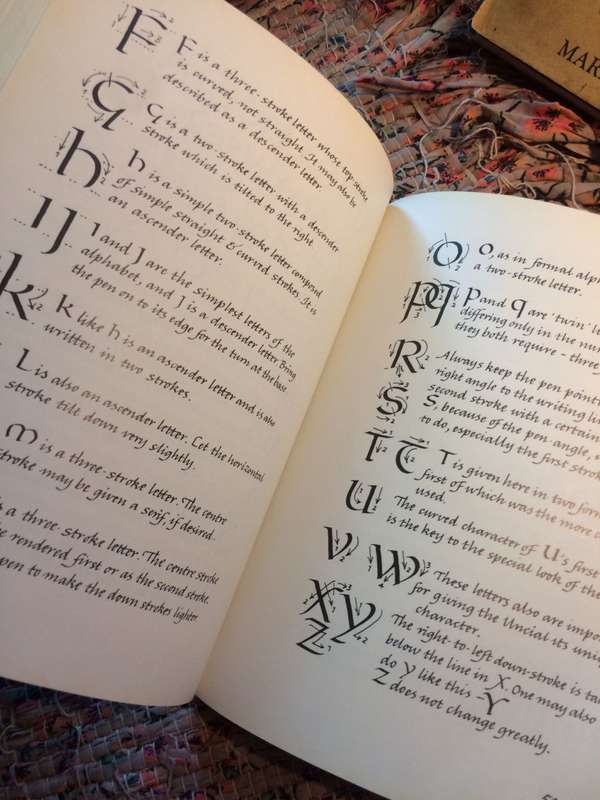 F F is a three-stroke letter whose top stroke
is curved, not straight. It may also be
described as a descender letter.
G G is a two-stroke letter with a descender
stroke which is tilted to the right.
h h is a simple two-stroke letter compound
of simple straight & curved strokes. It is
an ascender letter.
IJ I and J are the simplest letters of the
alphabet, and J is a descender letter. Bring
the pen on to its edge for the turn at the base.
k k like h is an ascender letter and is also
written in two strokes.
L is also an ascender letter. Let the horizontal
stroke tilt down very slightly.
m is a three-stroke letter. The centre
stroke may be given a serif, if desired.
a three-stroke letter. The centre stroke
be rendered first or as the second stroke.
pen to make the down strokes lighter
MAR
O O, as in formal
a two-stroke letter.
pq p and q are 'twin'
differing only in the
they both require – three
R Always keep the pen
right angle to the writing
second stroke with a certain
S S, because of the pen-angle,
to do, especially the first
T T T is given here in two
first of which was the more
used.
u The curved character of U's first
is the key to the special look of the
v w These letters also are
for giving the Uncial its
character.
X Y The right-to-left down-stroke is
below the line in X. One may also
do y like this Y
Z Z does not change greatly.